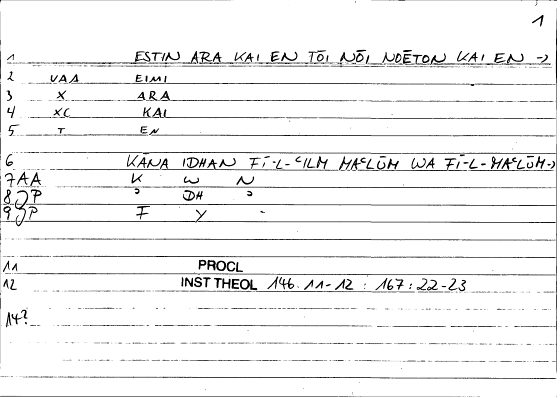 1
1 ESTIN ARA KAI EN TŌI NŌI NOĒTON KAI EN →
2 VAA EIMI
3 X ARA
4 XC KAI
5 T EN
6 KĀNA IDHAN FĪ-L-ʿILM MAʿLŪM WA FĪ-L-MAʿLŪM→
7AA K W N
8 P ʾ DH ʾ
9 P F Y -
11 PROCL
12 INST THEOL 146.11-12 : 167:22-23
14?